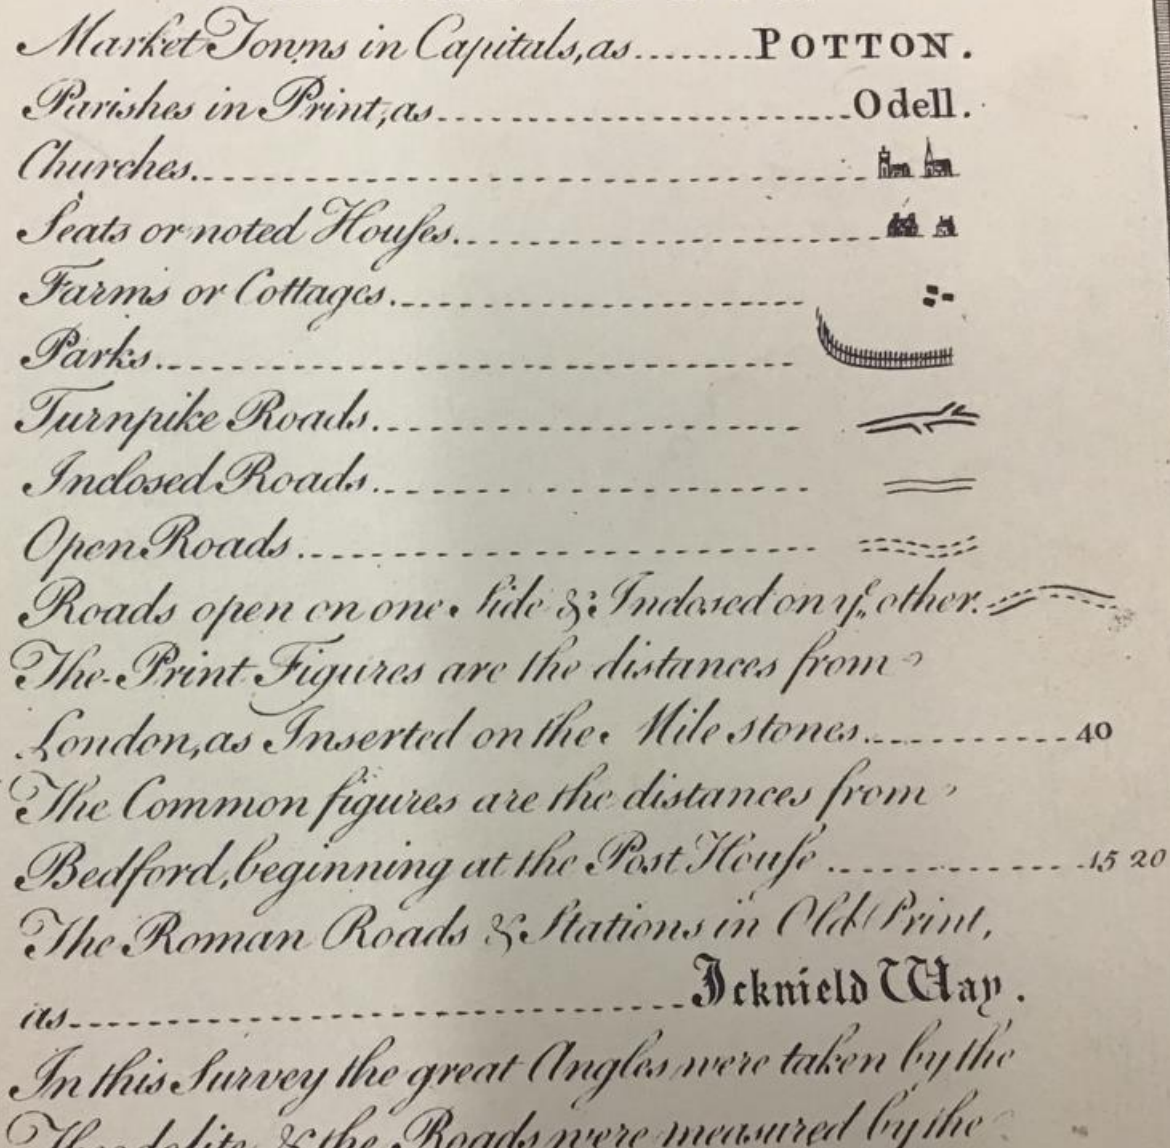 Market Towns in Capitals, as........POTTON.
Parishes in Print, as........Odell.
Churches........
Seats or noted Houſes........
Farms or Cottages........
Parks........
Turnpike Roads........
Inclosed Roads........
Open Roads........
Roads open on one Side & Inclosed on yᵉ. other.
The Print Figures are the distances from
London, as Inserted on the Mile stones........40
The Common figures are the distances from
Bedford, beginning at the Post Houſe........15 20
The Roman Roads & Stations in Old Print,
as........Icknield Way.
In this Survey the great Angles were taken by the
Theodolite, & the Roads were measured by the